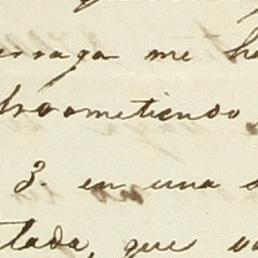 rraga me ha
prometiendo
3. en una s
tada, que va